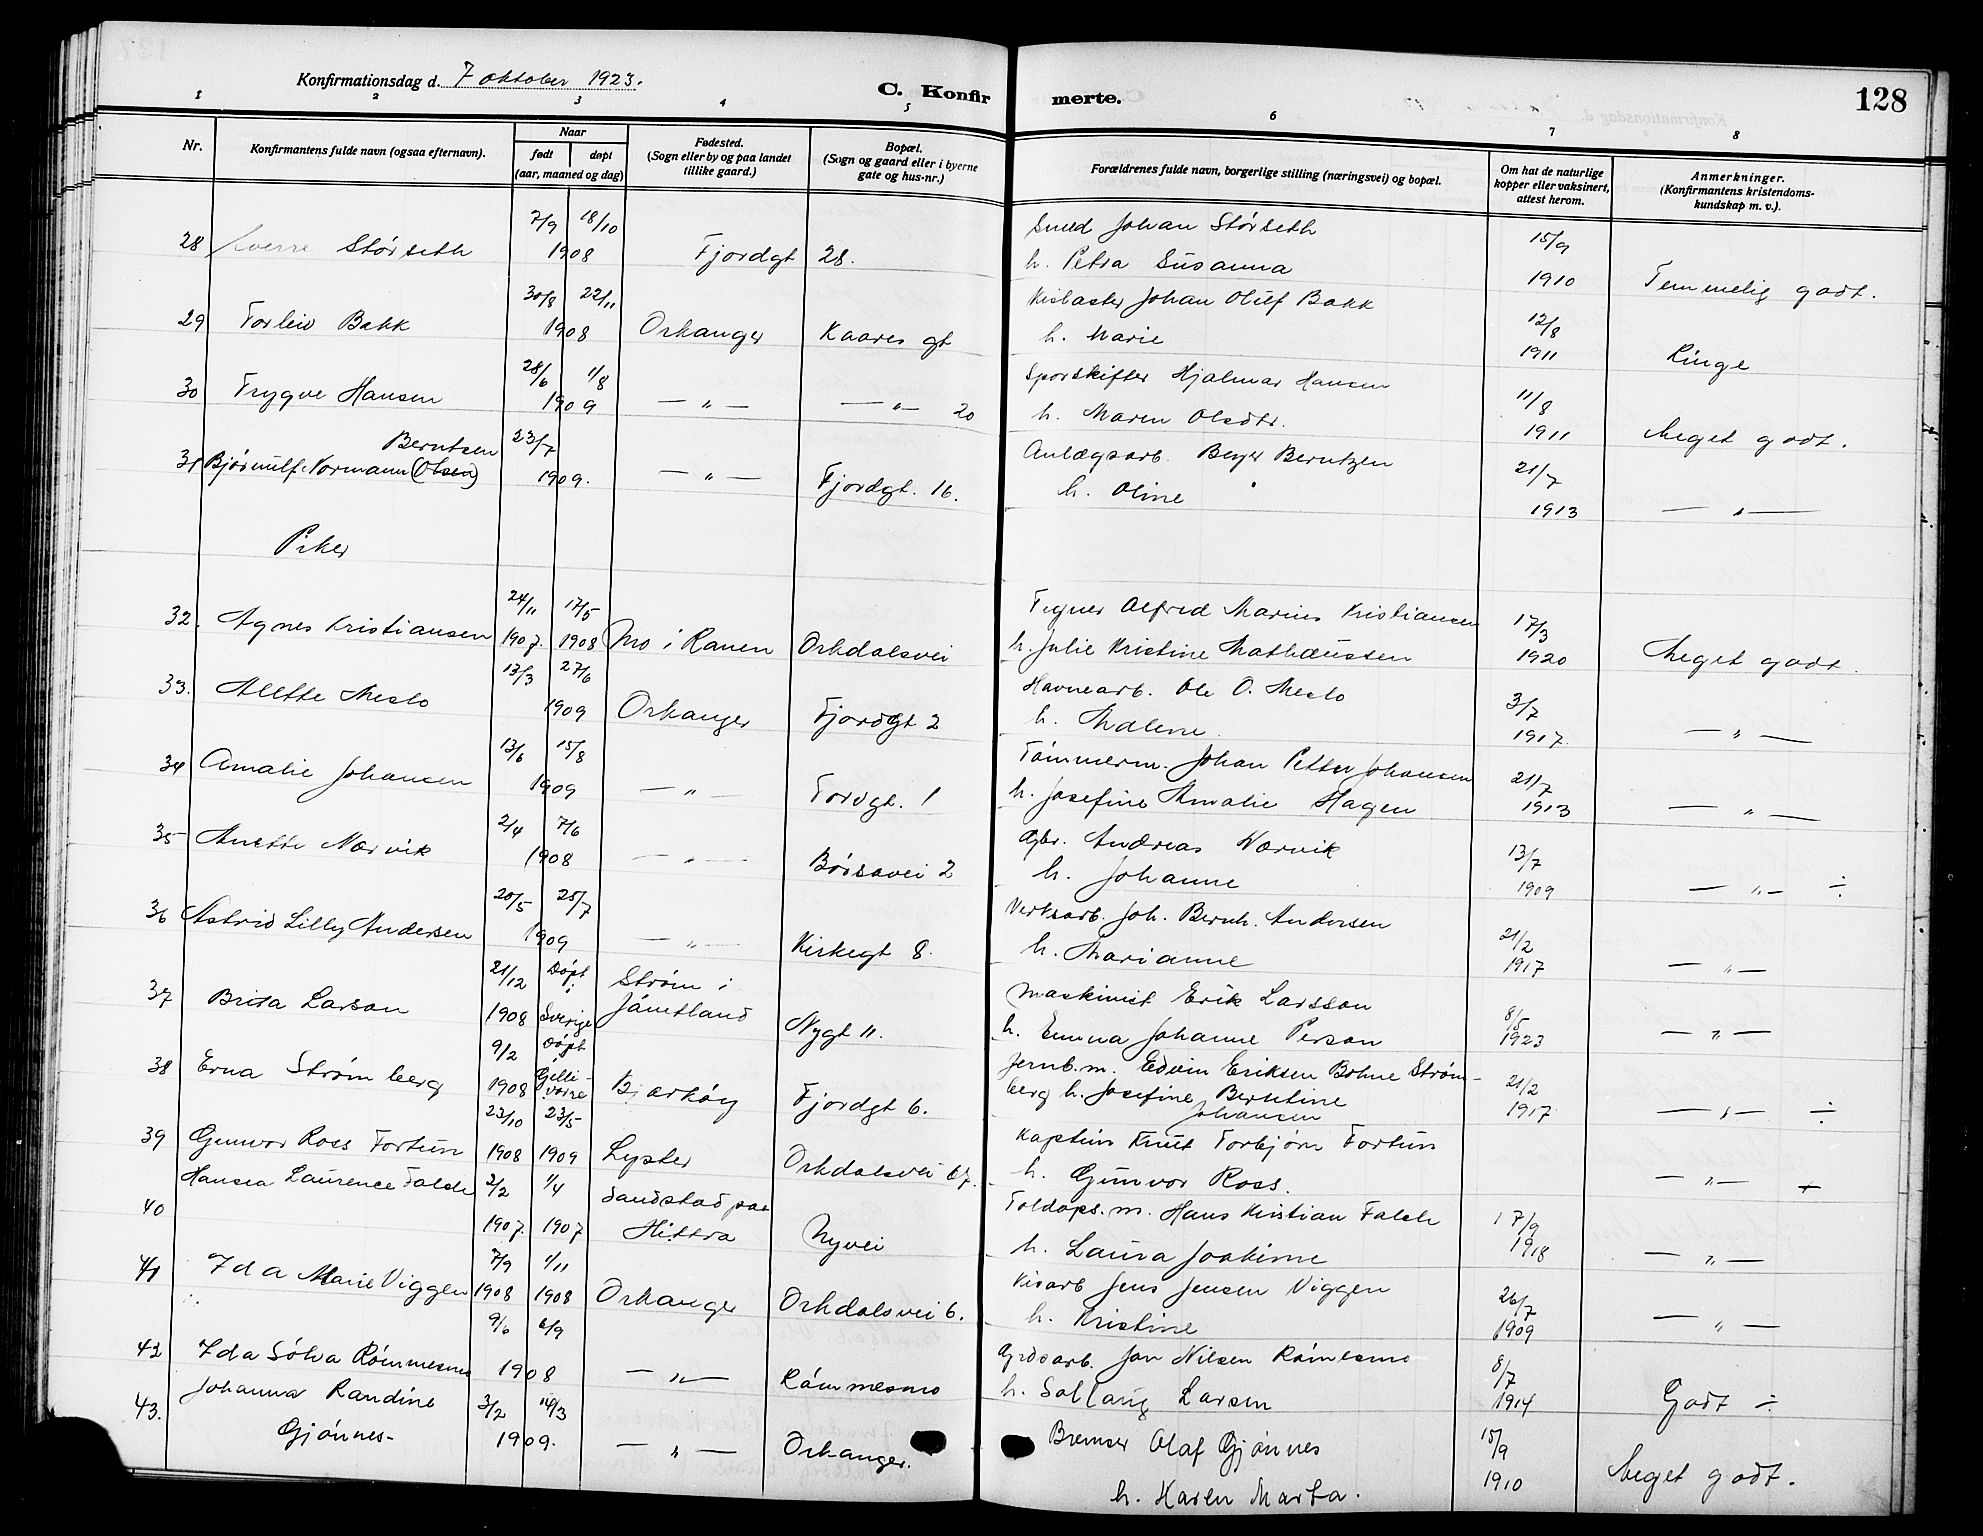 Konfirmationsdag d. 7 oktober 1923.
C. Konfir merte.
128
1 2 3 4 5 6 7 8
Nr.
Konfirmantens fulde navn (ogsaa efternavn).
Naar
født døpt
(aar, maaned og dag)
Fødested.
(Sogn eller by og paa landet
tillike gaard.)
Bopæl.
(Sogn og gaard eller i byerne
gate og hus-nr.)
Forældrenes fulde navn, borgerlige stilling (næringsvei) og bopæl.
Om hat de naturlige
kopper eller vaksinert,
attest herom.
Anmerkninger.
(Konfirmantens kristendoms-
kundskap m. v.).
7/9 18/10 Smed Johan Størseth 15/9
28 Sverre Størseth 1908 Fjordgt 28. h. Petra Susanna 1910 Temmelig godt.
30/8 22/11 Johan Oluf Bakk 12/8
29 Torleiv Bakk 1908 Orkanger Kaares gt h. Marie 1911 Ringe
28/6 1/8 Sporskifter Hjalmar Hansen 11/8
30 Trygve Hansen 1909 — " — — " — 20 h. Maren Olsdtr. 1911 Meget godt.
Berntsen 23/7 Anlægsarb. Berntzen 21/7
31 Bjørnulf Normann (Olsen) 1909. — " — Fjordgt. 16. h. Oline 1913 — " —
Piker
24/11 17/5 Tegner Alfred Marius Kristiansen 17/3
32. Agnes Kristiansen 1907. 1908 Mo i Ranen Orkdalsvei h. Julie Kristine Mathæussen 1920 Meget godt.
13/3 27/6 Havnearb. Ole O. Meslo 3/7
33. Alette Meslo 1909 Orkanger Fjordgt 2 h. Malene. 1917. — " —
13/6 15/8 Tømmerm. Johan Petter Johansen 21/7
34 Amalie Johansen 1909 — " — Tordgt. 1 h. Josefine Amalie Hagen 1913 — " —
2/4 7/6 Gbr. Andreas Nærvik 13/7
35 Anette Nærvik 1908 — " — Børsavei 2 h. Johanne 1909 — " — ÷
20/5 25/7 Verksarb. Joh. Bernh. Andersen 21/2
36 Astrid Lilly Andersen 1909 — " — Kirkegt 8. h. Marianne 1917 — " —
21/12 Døpt i Strøm i Maskinist Erik Larsson 8/5
37 Brida Larson 1908 Sverige Jämtland Nygt 11. h. Emma Johanne Person 1923 — " —
9/2 Døpt i Jernb.m. Edvin Eriksen Bohne Strøm- 21/2
38 Erna Strømberg 1908 Gelli- Bjarkøy Fjordgt 6. berg h. Josefine Berntine 1917. — " — ÷
vare Johansen
23/10 23/5 Kaptein Knut Torbjørn Fortun
39 Gunvor Ross Fortun 1908 1909 Lyster Orkdalsvei 67. h. Gunvor Ross. — " — +
Hansea Laurence Falch 2/2 1/4 Sandstad paa Toldops.m. Hans Kristian Falch 17/9
40 1907. 1907 Hittra Nyvei h. Laura Joakime 1918 — " —
7/9 1/11 Kisarb Jens Jensen Viggen 26/7
41 Ida Marie Viggen 1908 1908 Orkanger Orkdalsvei 6. h. Kristine 1909 — " —
9/6 6/9 Grdsarb. Jon Nilsen Rømesmo 8/7
42 Ida Sølva Rømmesmo 1908 — " — Rømmesmo h. Sollaug Larsen 1914 Godt ÷
Johanna Randine 3/2 14/3 Bremser Olaf Gjønnes 15/9
43. Gjønnes- 1909. — " — Orkanger. h. Karen Marta. 1910 Meget godt.